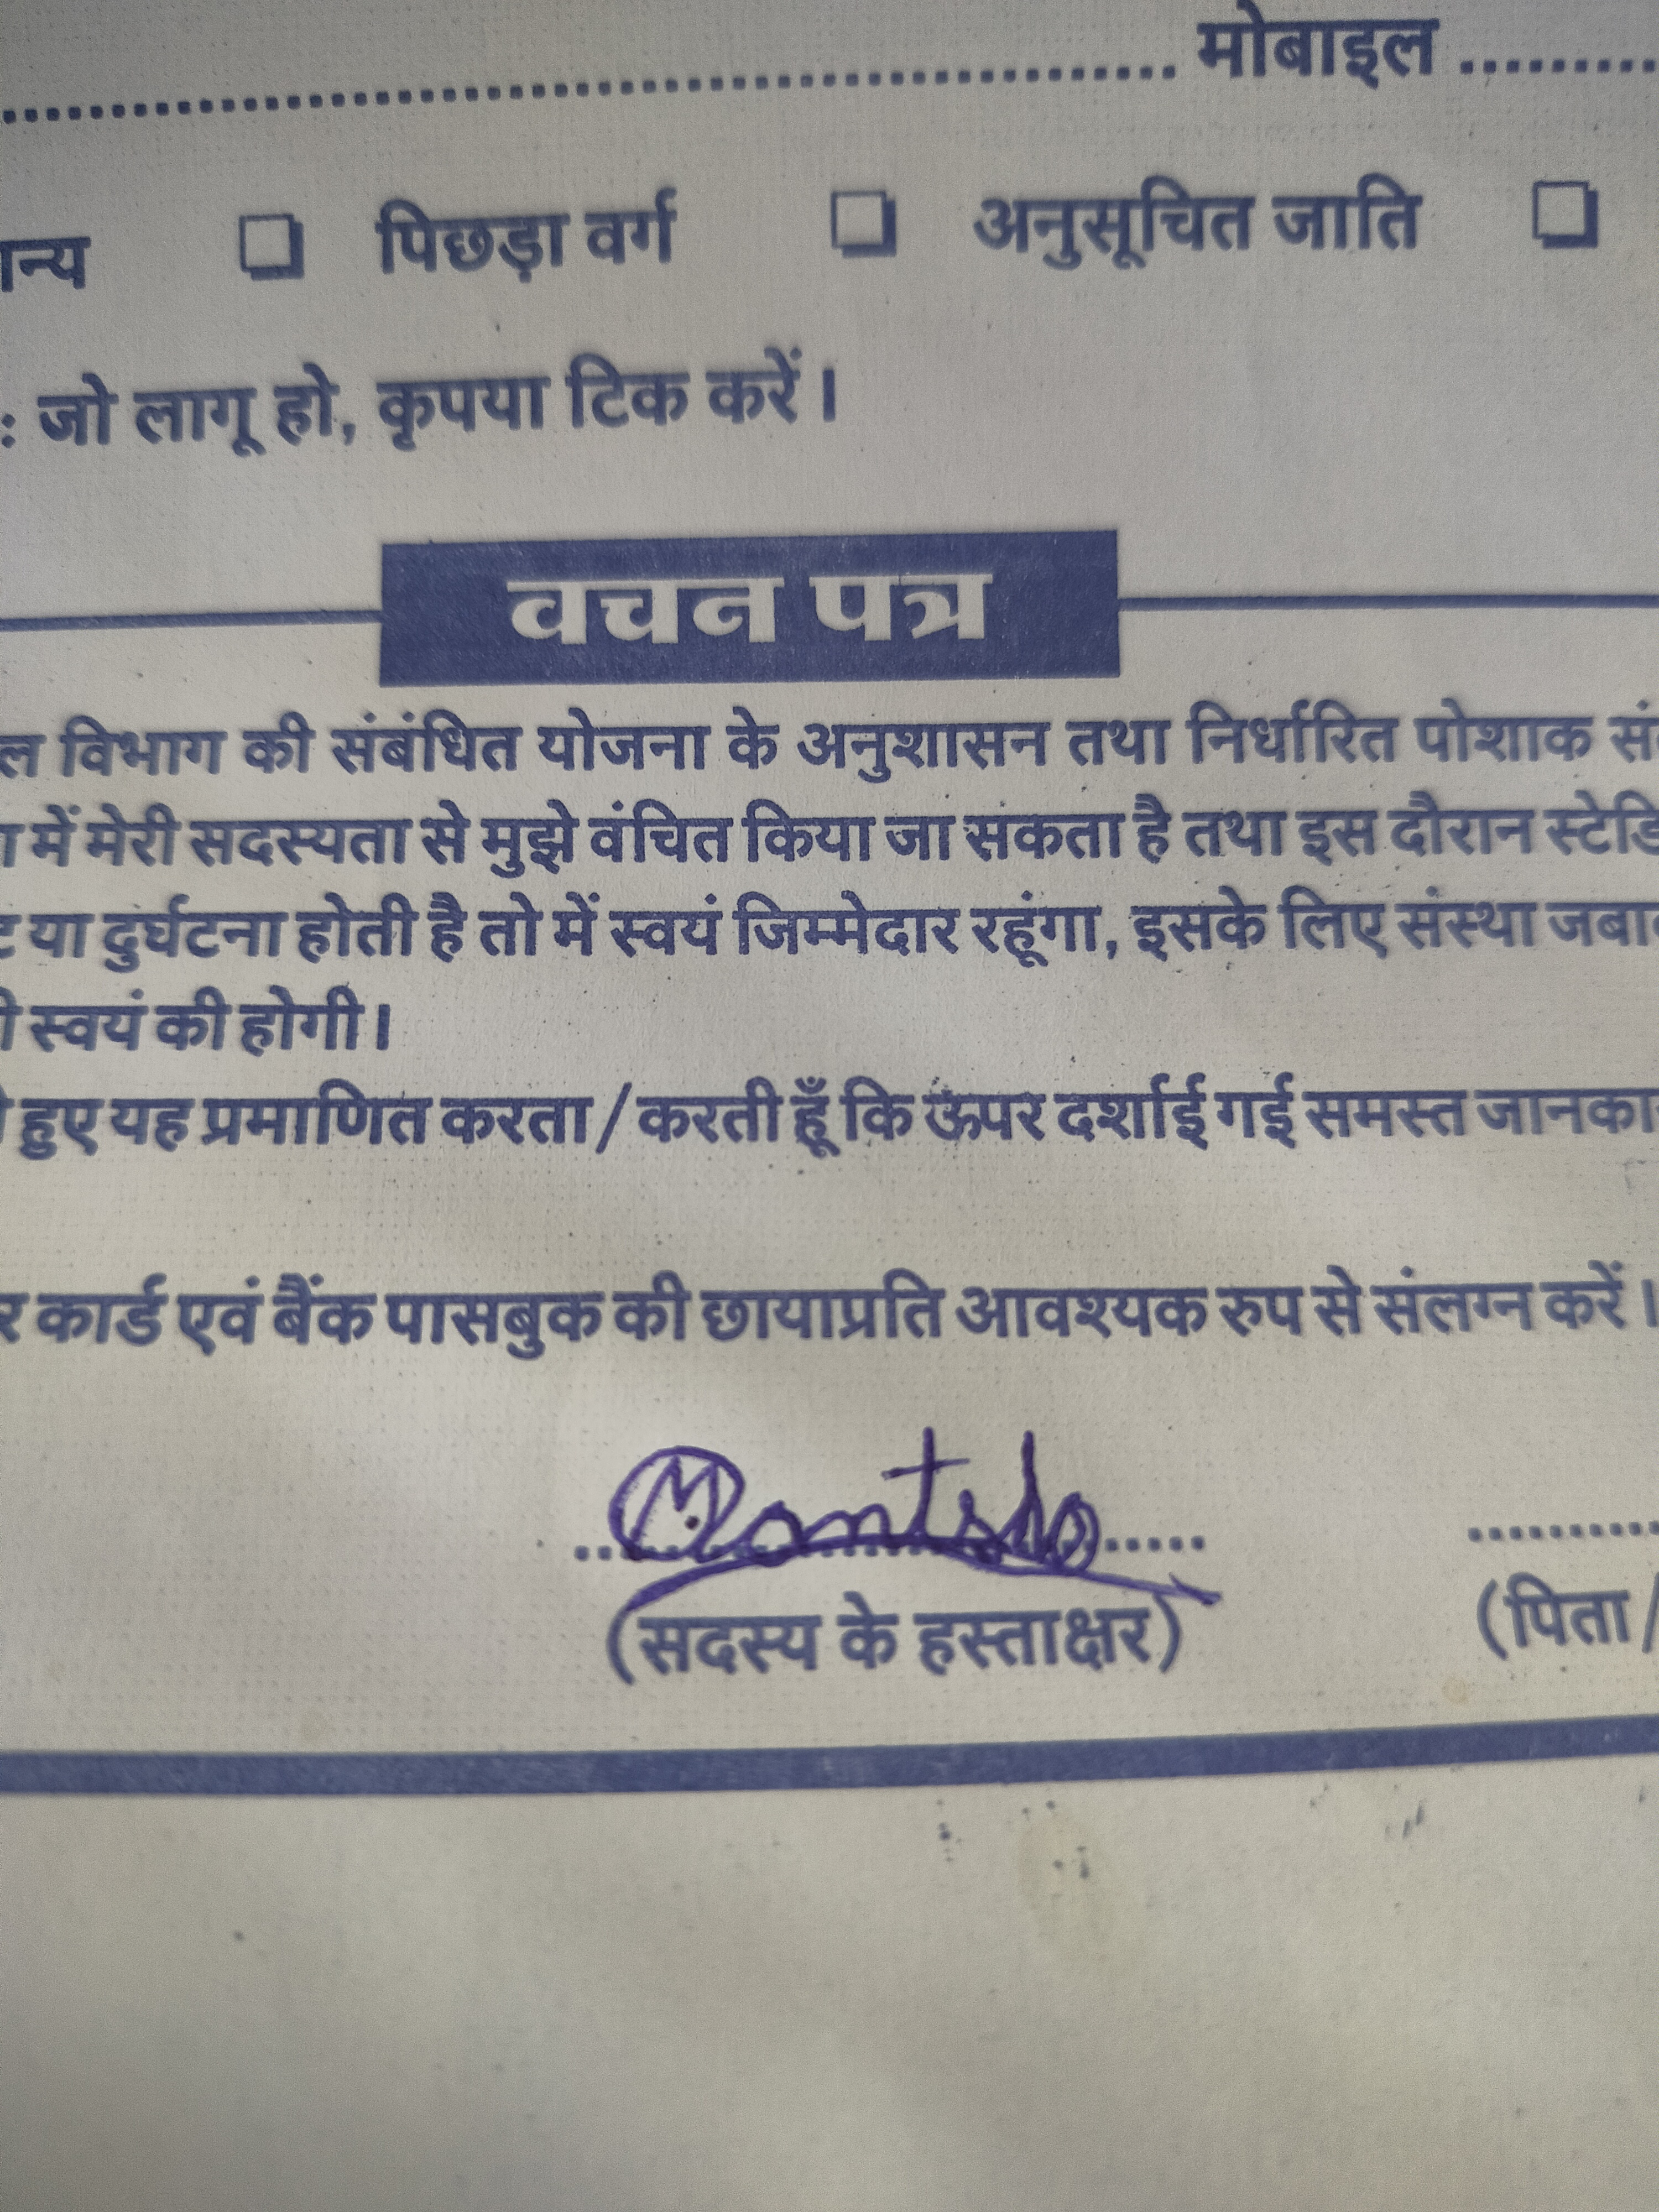 ................................................ मोबाइल .........
ान्य ❏ पिछड़ा वर्ग ❏ अनुसूचित जाति ❏
: जो लागू हो, कृपया टिक करें।
वचन पत्र
ल विभाग की संबंधित योजना के अनुशासन तथा निर्धारित पोशाक
में मेरी सदस्यता से मुझे वंचित किया जा सकता है तथा इस दौरान स्टेडि
या दुर्घटना होती है तो में स्वयं जिम्मेदार रहूंगा, इसके लिए संस्था जबा
स्वयं की होगी।
हुए यह प्रमाणित करता / करती हूँ कि ऊपर दर्शाई गई समस्त जानका
र कार्ड एवं बैंक पासबुक की छायाप्रति आवश्यक रुप से संलग्न करें।
(सदस्य के हस्ताक्षर) (पिता/